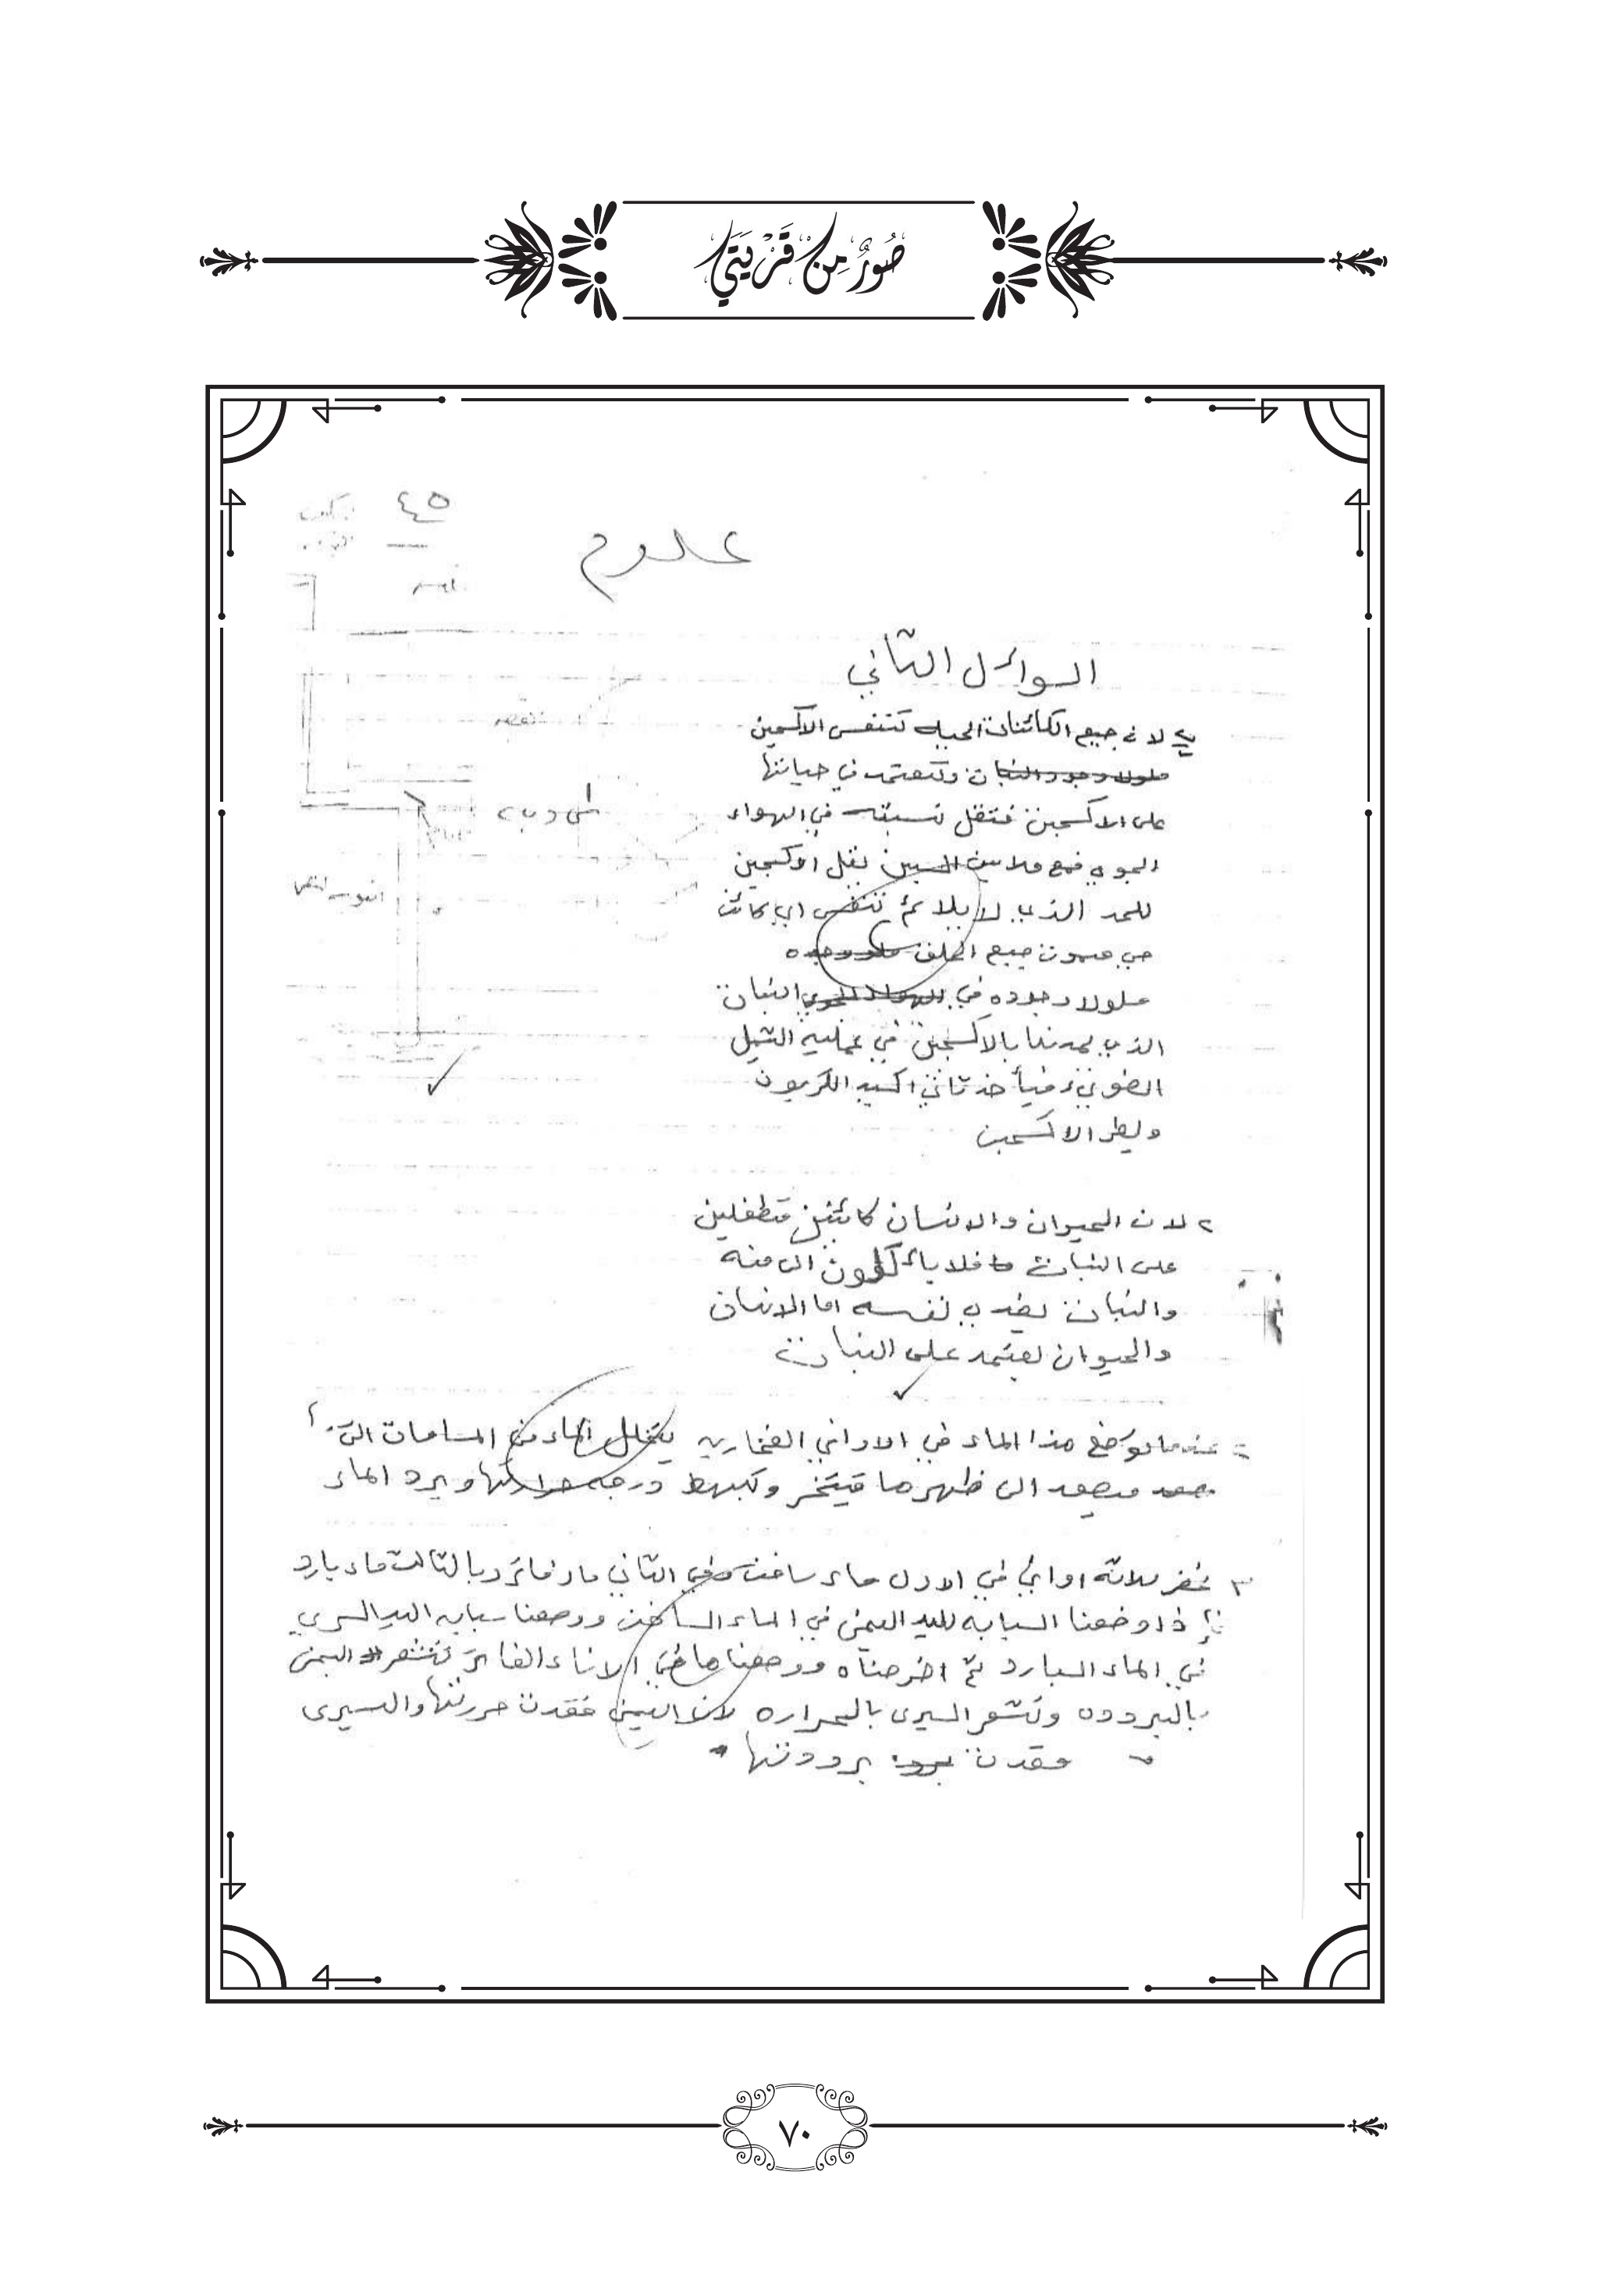 صُوَرٌ مِنْ قَرْيَتِي
٤٥
علوم
السوائل الثاني
لان جميع الكائنات الحيه تتنفس الاكسجين
وتعتمد في حياتها
على الاكسجين فتقل نسبته في الهواء
الجوي يقل اوكسجين
للحد الذي لا يلائم تنفس اي كائن
حي جميع الخلق
في النبات
الذي يمدنا بالاكسجين في عمليه التمثيل
الضوئي فيأخذ ثاني اكسيد الكربون
الاكسجين
٢ لان الحيوان والانسان كائنين متطفلين
على النبات فلا يائكلون الى منه
والنبات يغدي لنفسه اما الانسان
والحيوان يعتمد على النبات
هذا الماء في الاواني الفخاريه يتخلل الماء من المسامات التي
فيصعد الى ظهرها فيتخر وتهبط درجه حرارتها ويرد الماء
٣ نحضر ثلاثه اواني في الاول ماء ساخن وفي الثاني ماء فاتر وبالثالث ماء بارد
فإذا وضعنا السبابه لليد اليمنى في الماء الساخن ووضعنا سبابه اليد اليسرى
في الماء البارد ثم اخرجناه ووضعناها في الاناء الفاتر فتشعر اليمنى
بالبروده وتشعر اليسرى بالحراره لان اليمنى فقدت حررتها واليسرى
فقدت برودتها
٧٠